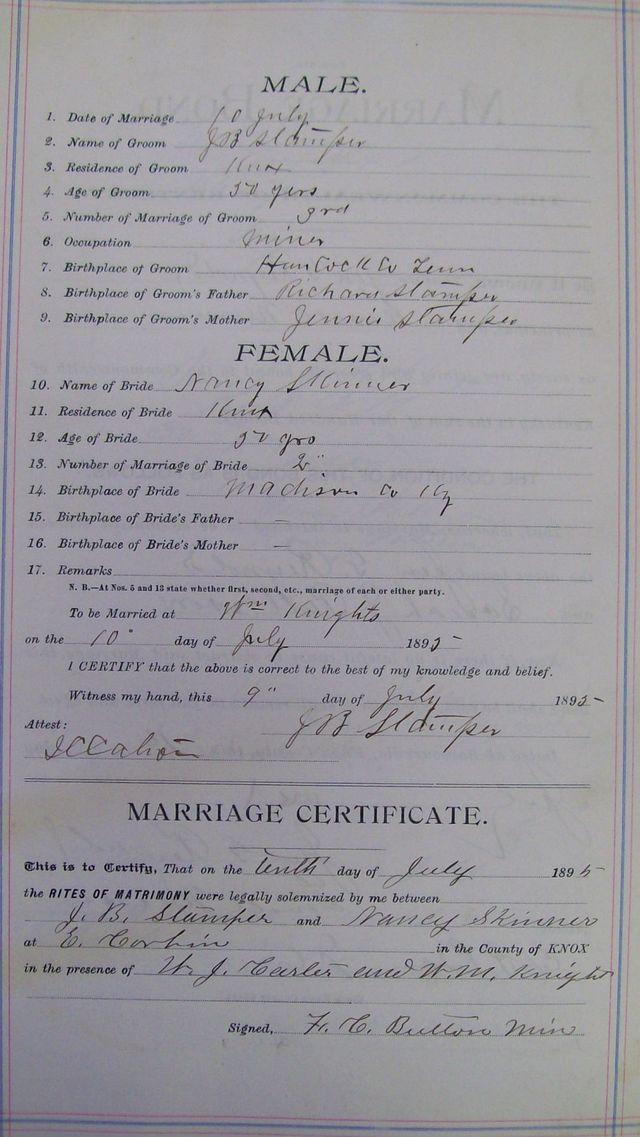 MALE.
1. Date of Marriage 10 July
2. Name of Groom JB Stamper
3. Residence of Groom Knox
4. Age of Groom 50 yers
5. Number of Marriage of Groom 3rd
6. Occupation Miner
7. Birthplace of Groom Hancock Co Tenn
8. Birthplace of Groom's Father Richard Stamper
9. Birthplace of Groom's Mother Jennie Stamper
FEMALE.
10. Name of Bride Nancy Skinner
11. Residence of Bride Knox
12. Age of Bride 50 yrs
13. Number of Marriage of Bride 2"
14. Birthplace of Bride Madison Co Ky
15. Birthplace of Bride's Father —
16. Birthplace of Bride's Mother —
17. Remarks
N. B.—At Nos. 5 and 13 state whether first, second, etc., marriage of each or either party.
To be Married at Wm Knights
on the 10" day of July 1895
I CERTIFY that the above is correct to the best of my knowledge and belief.
Witness my hand, this 9" day of July 1895
Attest: JB Stamper
MARRIAGE CERTIFICATE.
This is to Certify, That on the tenth day of July 1895
the RITES OF MATRIMONY were legally solemnized by me between
J. B. Stamper and Nancy Skinner
at E. Corbin in the County of KNOX
in the presence of W. J. Carter and W. M. Knight
Signed, F. C. Button Min